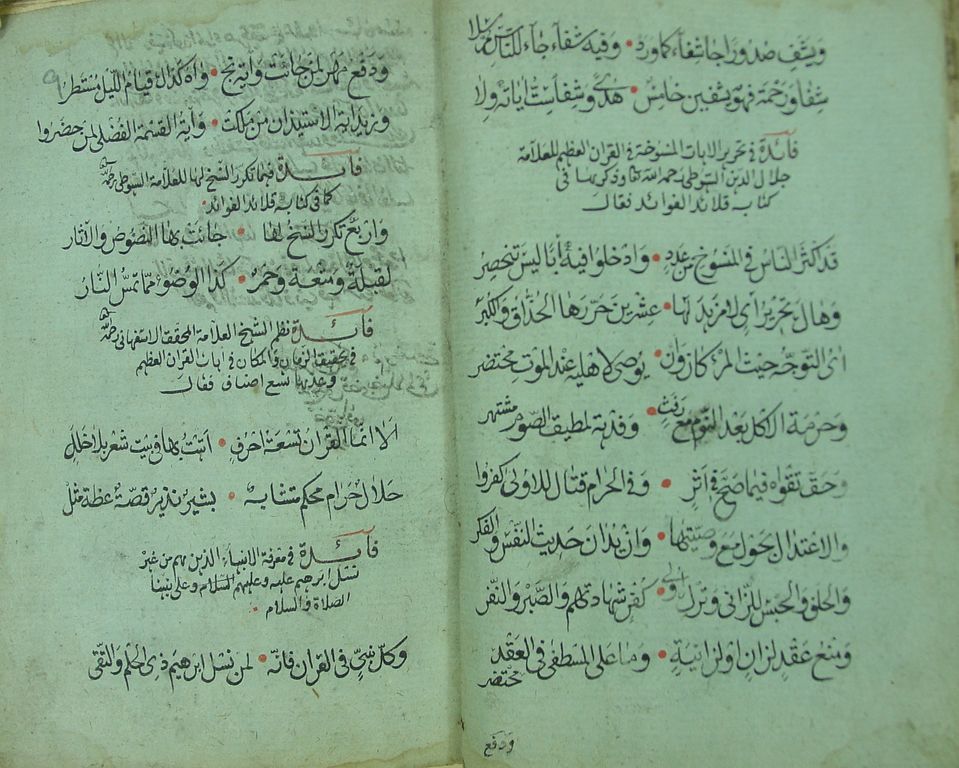 ويشف صدورا جا شفاء كما ورد • وفيه شفاء جاء للناس
شفا ورحمة فهو يشفين خامس • هدى وشفا ست اياته ولا
فائدة في تحرير الايات المنسوخة في القران العظيم للعلامة
جلال الدين السيوطي رحمه الله تعالى وذكرها في
كتابه قلائد الفوائد فقال
قد اكثر الناس في المنسوخ من عدد • وادخلوا فيه أيا ليس تنحصر
وهاك تحرير أي لا مزيد لها • عشرين حررها الحذاق والكبر
اى التوجه حيث المرؤ كان وان • يوصى لاهليه عند الموت محتضر
وحرمة الاكل بعد النوم مع رفث • وفدية لمطيق الصوم مشتهر
وحق تقواه فيما صح في اثر • وفي الحرام قتال للاولى كفروا
والاعتدال بحول مع وصيتها • وان يدان حديث النفس والفكر
والحلف والحبس للزاني وترك اولى • كفر شهادتهم والصبر والنفر
ومنع عقد لزان او لزانية • وما على المصطفى في العقد
محتضر
ودفع
ودفع مهر لمن جائت واية نجوى • واذ كذاك قيام الليل مستطر
وزيد اية الاستيذان من ملكت • وأية القسمة الفضلى لمن حضروا
فائدة فيما تكرر النسخ لها للعلامة السيوطي رحمه الله
كما في كتابه قلائد الفوائد •
واربع تكرر النسخ لها • جائت بها النصوص والآثار
لقبلة ومتعة وحمر • كذا الوضوء مما تمس النار
فائدة نظم الشيخ العلامة المحقق الاصفهاني رحمه الله
في تحقيق الزمان والمكان في ايات القران العظيم
وعدها تسع اصناف فقال
الا انما القران تسعة احرف • اتيت بها في بيت شعر بلا خلل
حلال حرام محكم متشابه • بشير نذير قصة عظة مثل
فائدة في معرفة الانبياء الذين هم من غير
نسل ابرهيم عليه وعليهم السلام وعلى نبينا
الصلاة والسلام •
وكل نبي في القران فانه • لمن نسل ابرهيم ذي الحلم والتقى